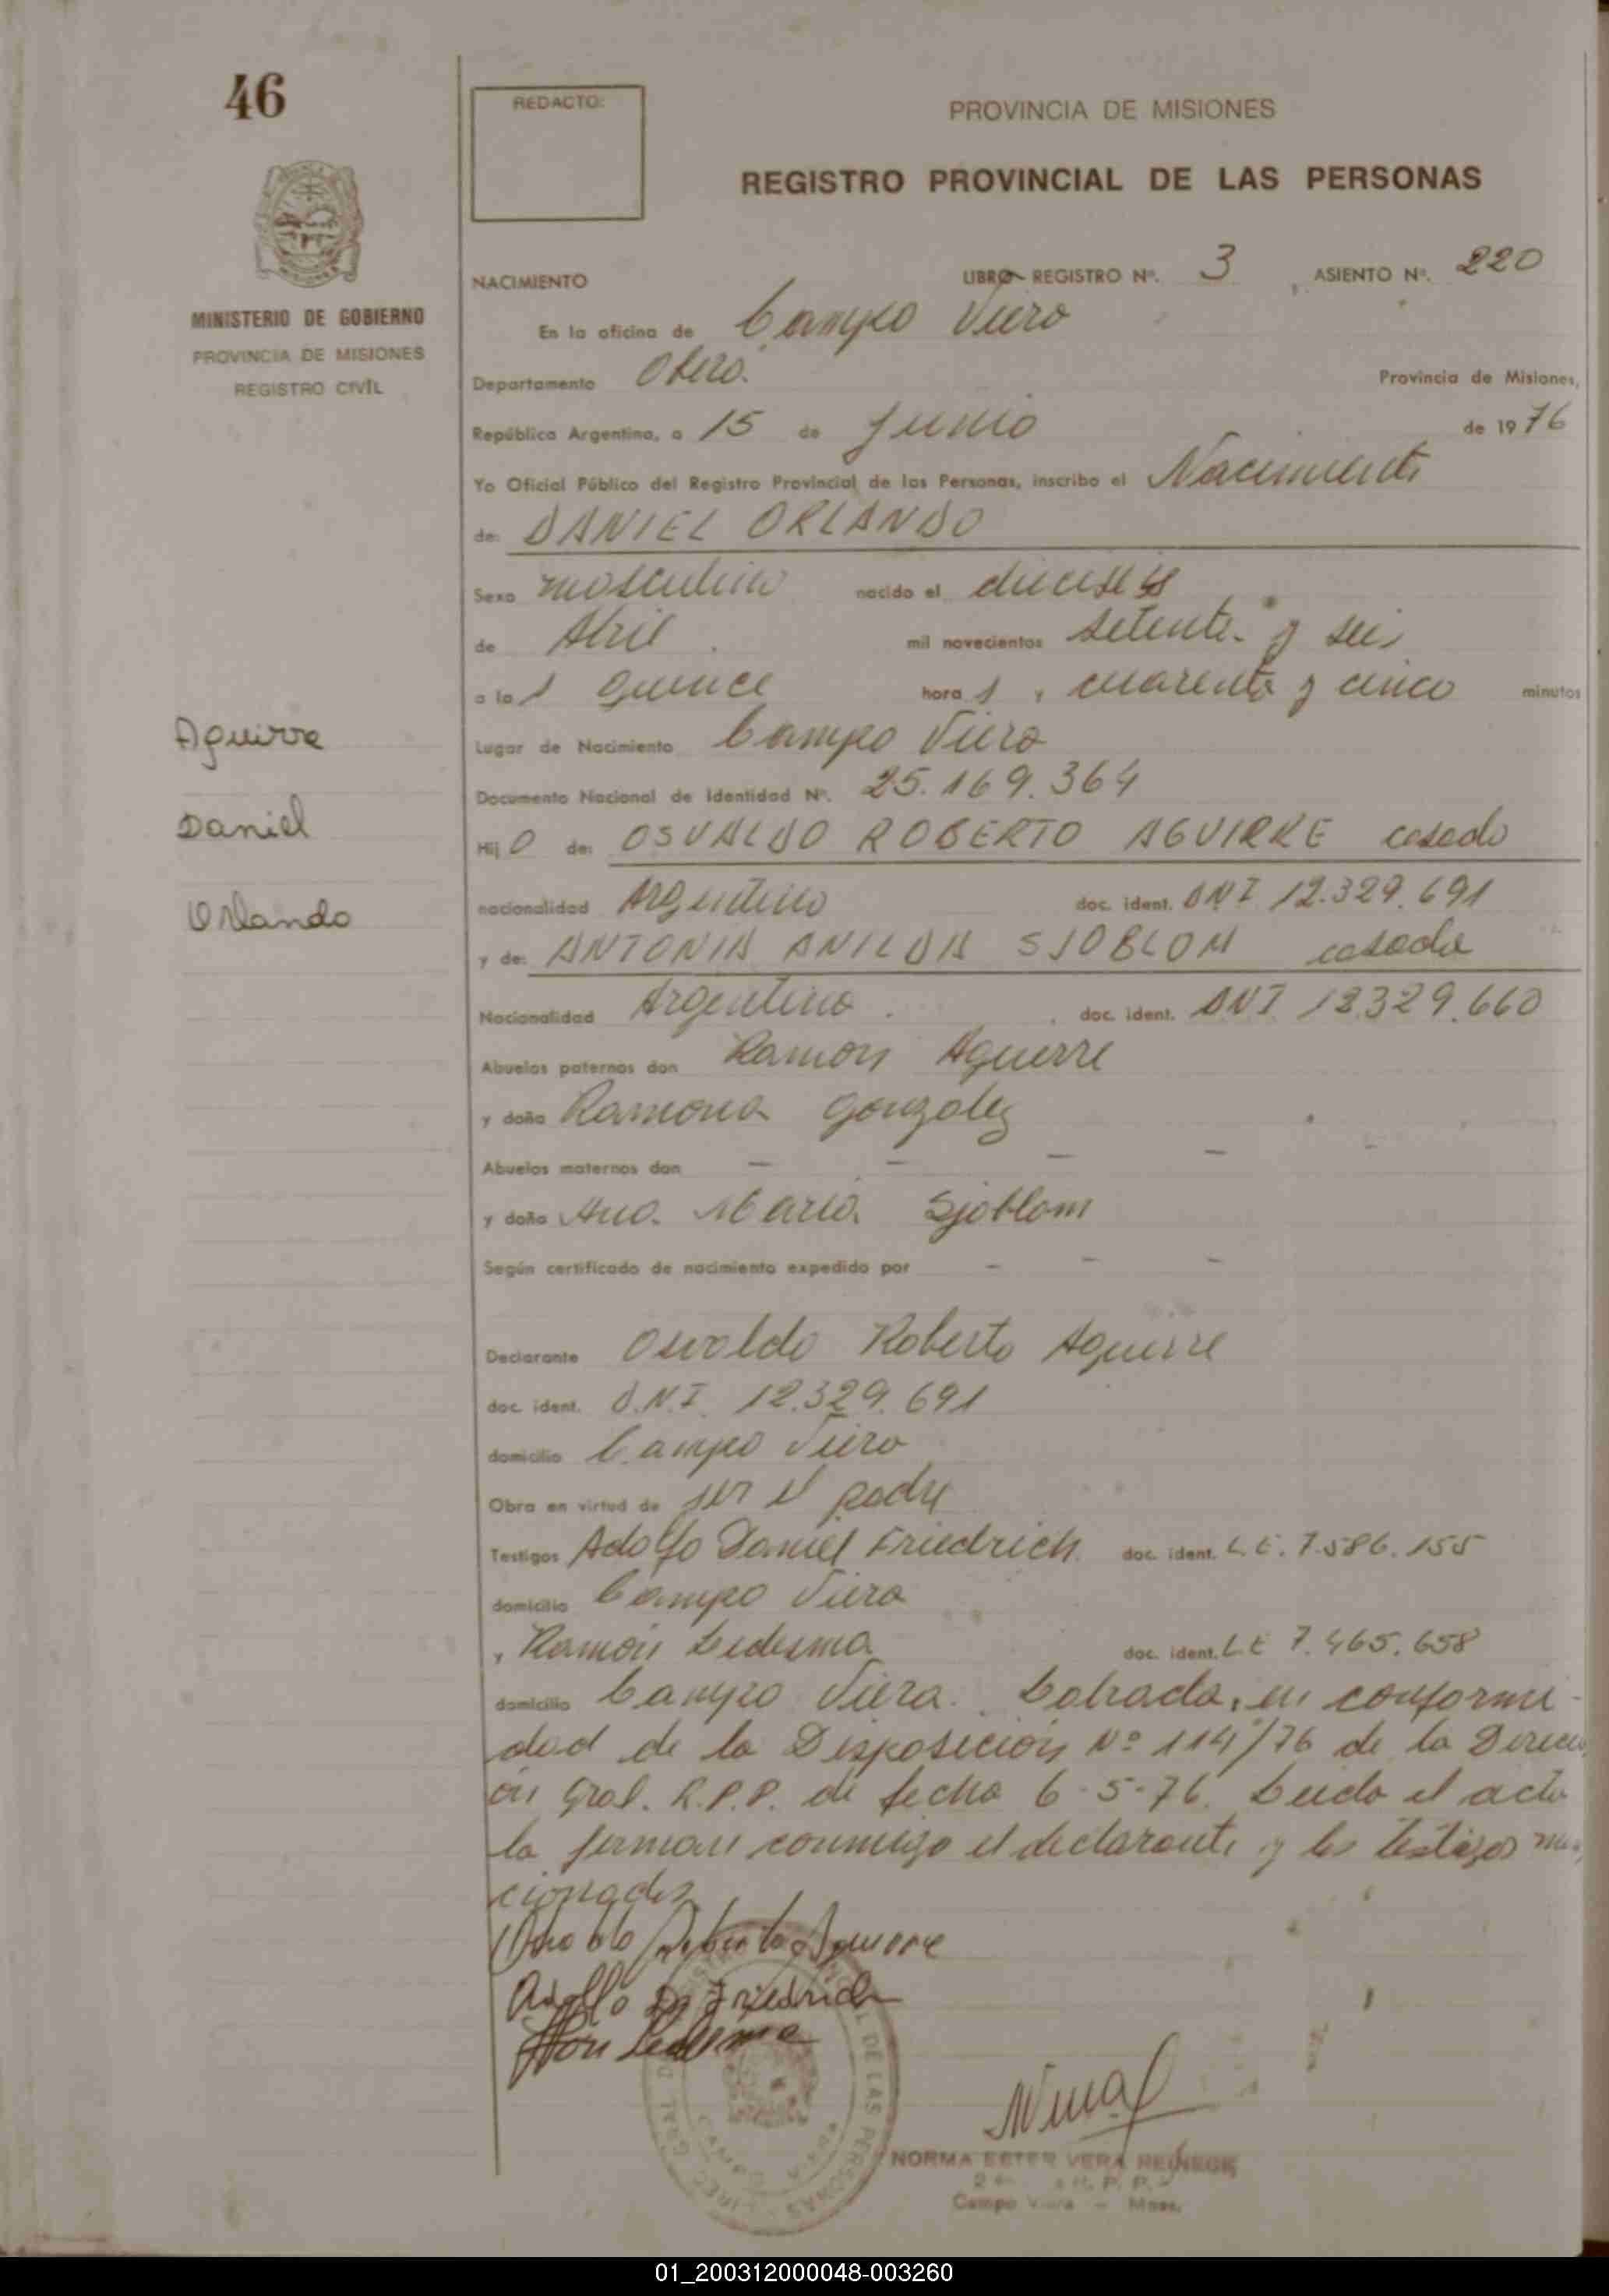 46
REDACTO:
PROVINCIA DE MISIONES
REGISTRO PROVINCIAL DE LAS PERSONAS
MINISTERIO DE GOBIERNO
PROVINCIA DE MISIONES
REGISTRO CIVIL
NACIMIENTO LIBRO REGISTRO Nº. 3 , ASIENTO Nº. 220
En la oficina de Campo Viera
Departamento Oberá. Provincia de Misiones,
República Argentina, a 15 de Junio de 1976
Yo Oficial Público del Registro Provincial de las Personas, inscribo el Nacimiento
de: DANIEL ORLANDO
Sexo masculino nacido el dieciseis
de Abril mil novecientos setenta y seis
a las quince horas y cuarenta y cinco minutos
Lugar de Nacimiento Campo Viera
Documento Nacional de Identidad Nº. 25.169.364
Hijo de: OSVALDO ROBERTO AGUIRRE casado
nacionalidad Argentino doc. ident. DNI 12.329.691
y de: ANTONIA ANILDA SJOBLOM casada
Nacionalidad Argentina doc. ident. DNI 12.329.660
Abuelos paternos don Ramón Aguirre
y doña Ramona Gonzalez
Abuelos maternos don - - - - -
y doña Ana María Sjoblom
Según certificado de nacimiento expedido por - - -
Declarante Osvaldo Roberto Aguirre
doc. ident. D.N.I. 12.329.691
domicilio Campo Viera
Obra en virtud de ser el padre
Testigos Adolfo Daniel Friedrich doc. ident. L.E. 7.586.155
domicilio Campo Viera
y Ramón Ledesma doc. ident. LE 7.465.658
domicilio Campo Viera. Labrada, en conformi-
dad de la Disposición Nº 114/76 de la Direcci
ón Gral. R.P.P. de fecha 6-5-76. Leida el acta
la firman conmigo el declarante y los testigos men
cionados
Osvaldo Roberto Aguirre
Adolfo D. Friedrich
Ledesma
Aguirre
Daniel
Orlando
DE LAS PERSONAS
NORMA ESTER VERA REINECK
Campo Viera - Mnes.
01_200312000048-003260